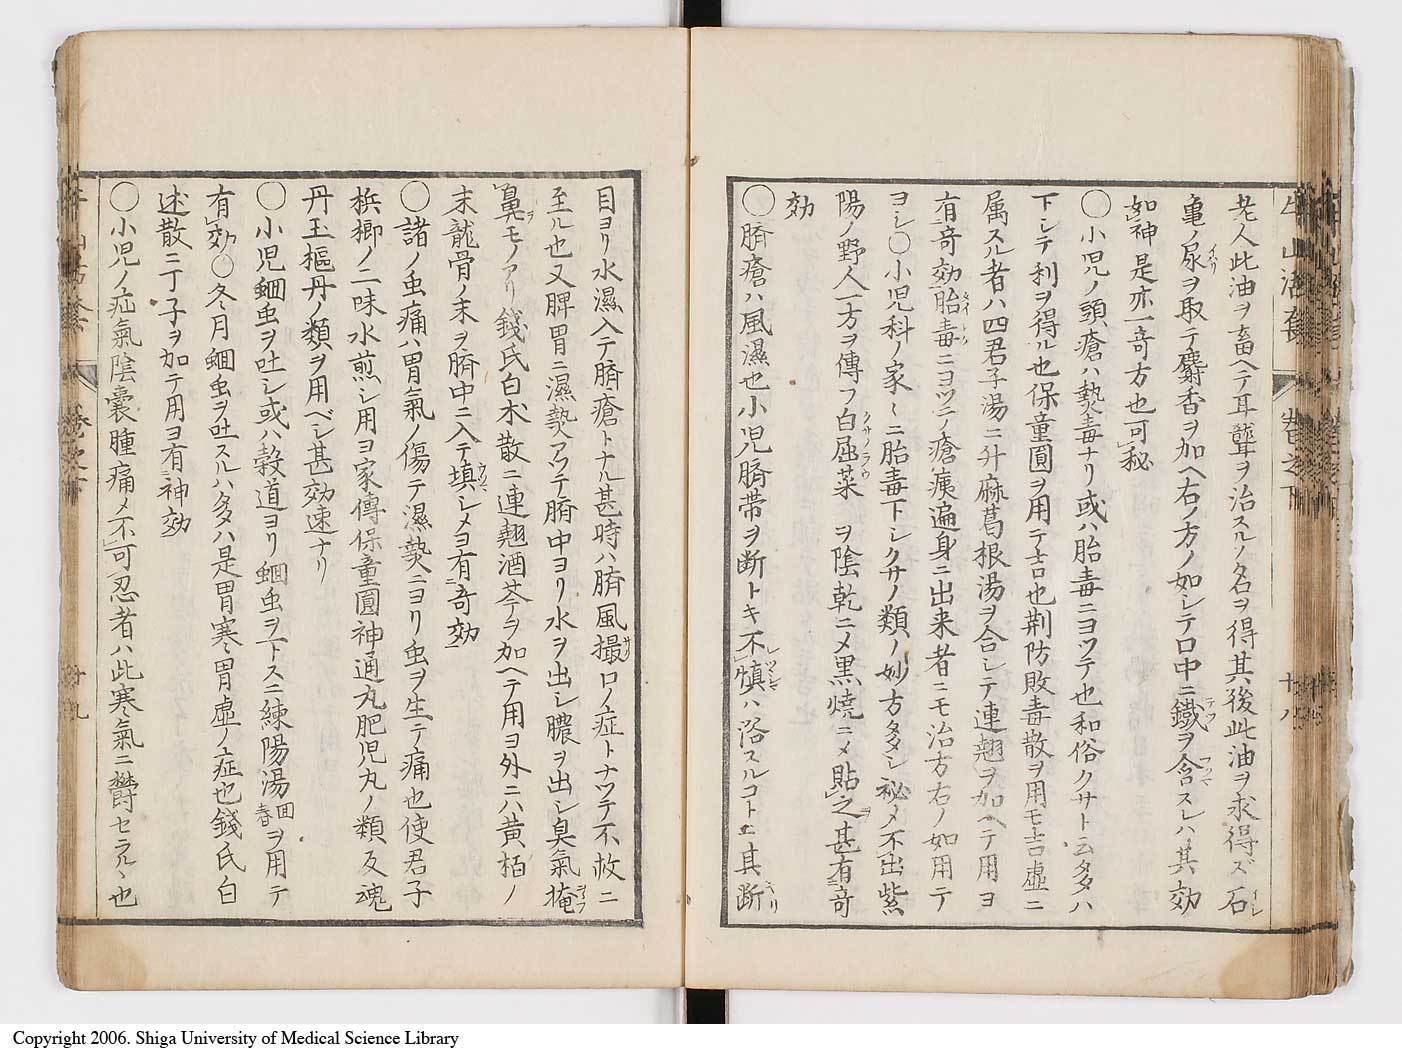 老人此油ヲ畜ヘテ耳聾ヲ治スルノ名ヲ得其後此油ヲ求得ズ石
亀ノ尿ヲ取テ麝香ヲ加ヘ右ノ方ノ如シテ口中ニ鐵ヲ含スレハ其効
如神是亦一奇方也可秘
○小児ノ頭瘡ハ熱毒ナリ或ハ胎毒ニヨツテ也和俗クサト云多ハ
下シテ利ヲ得ル也保童圓ヲ用テ吉也荊防敗毒散ヲ用モ吉虚ニ
属スル者ハ四君子湯ニ升麻葛根湯ヲ合シテ連翹ヲ加ヘテ用ヨ
有奇効胎毒ニヨツテ瘡痍遍身ニ出来者ニモ治方右ノ如用テ
ヨシ○小児科ノ家〻ニ胎毒下シクサノ類ノ妙方多シ秘メ不出紫
陽ノ野人一方ヲ傳フ白屈菜ヲ陰乾ニメ黒焼ニメ貼之甚有奇
効
○臍瘡ハ風濕也小児臍帯ヲ断トキ不慎ハ浴スルコト
其断
目ヨリ水濕入テ臍瘡トナル甚時ハ臍風撮口ノ症トナツテ不救ニ
至ル也又脾胃ニ濕熱アツテ臍中ヨリ水ヲ出シ膿ヲ出シ臭氣掩
鼻モノアリ錢氏白朮散ニ連翹酒芩ヲ加ヘテ用ヨ外ニハ黄栢ノ
末龍骨ノ末ヲ臍中ニ入テ填シメヨ有奇効
○諸ノ虫痛ハ胃氣ノ傷テ濕熱ニヨリ虫ヲ生テ痛也使君子
梹榔ノ二味水煎シ用ヨ家傳保童圓神通丸肥児丸ノ類反魂
丹玉樞丹ノ類ヲ用ベシ甚効速ナリ
○小児蛔虫ヲ吐シ或ハ穀道ヨリ蛔虫ヲ下スニ練陽湯回春ヲ用テ
有効○冬月蛔虫ヲ吐スルハ多ハ是胃寒胃虚ノ症也錢氏白
朮散ニ丁子ヲ加テ用ヨ有神効
○小児ノ疝氣陰嚢腫痛メ不可忍者ハ此寒氣ニ欝セラルヽ也
牛山活套 巻之下 十八
Copyright 2006. Shiga University of Medical Science Library